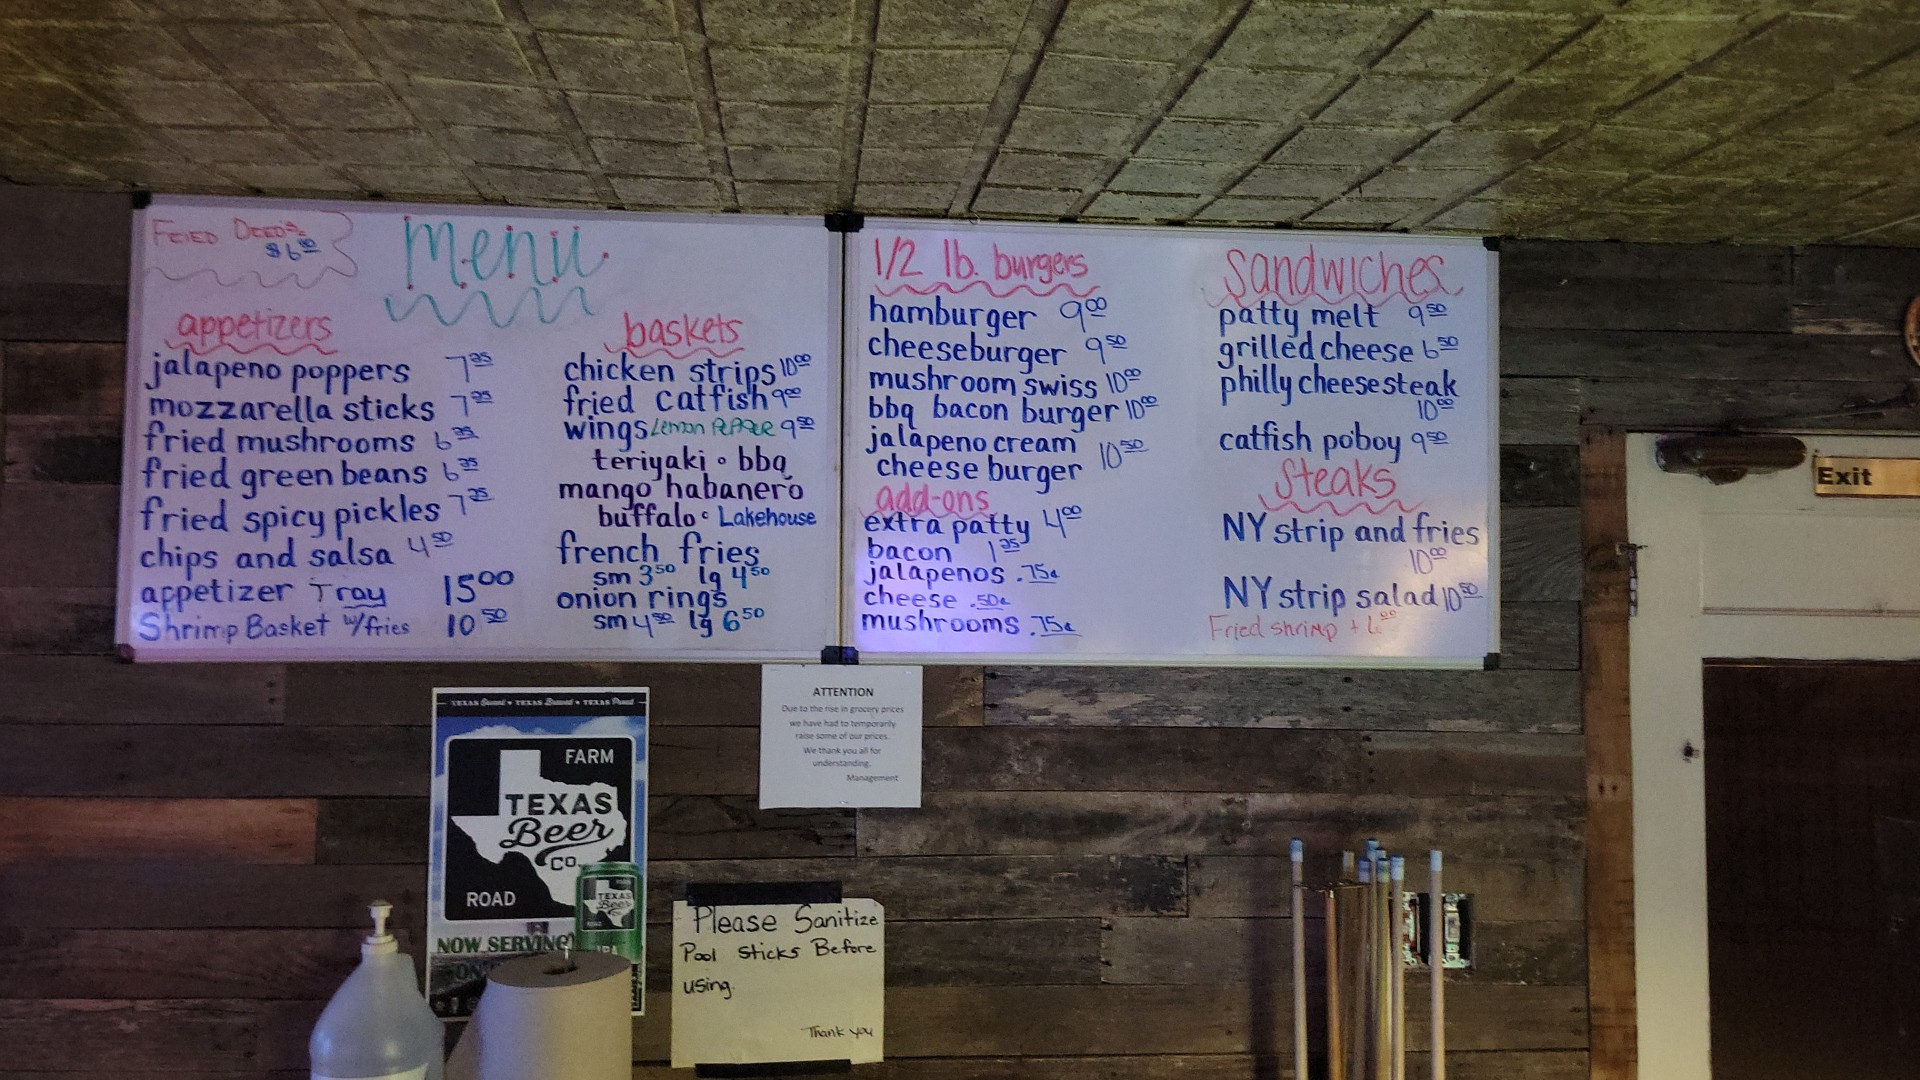 Fried Deeds
$6.00
Menu
appetizers
jalapeno poppers 7.25
mozzarella sticks 7.25
fried mushrooms 6.25
fried green beans 6.25
fried spicy pickles 7.25
chips and salsa 4.50
appetizer Tray 15.00
Shrimp Basket w/fries 10.50
baskets
chicken strips 10.00
fried catfish 9.00
wings Lemon Pepper 9.50
teriyaki • bbq
mango habanero
buffalo • Lakehouse
french fries
sm 3.50 lg 4.50
onion rings
sm 4.50 lg 6.50
1/2 lb. burgers
hamburger 9.00
cheeseburger 9.50
mushroom swiss 10.00
bbq bacon burger 10.00
jalapeno cream
cheese burger 10.50
add-ons
extra patty 4.00
bacon 1.25
jalapenos .75¢
cheese .50¢
mushrooms .75¢
Sandwiches
patty melt 9.50
grilled cheese 6.50
philly cheesesteak
10.00
catfish po'boy 9.50
Steaks
NY strip and fries
10.00
NY strip salad 10.50
Fried shrimp +
Exit
ATTENTION
Due to the rise in grocery prices
we have had to temporarily
raise some of our prices.
We thank you all for
understanding.
Management
TEXAS Sweat • TEXAS Brewed • TEXAS Proud
FARM
TEXAS
Beer
CO.
ROAD
TEXAS
Beer
NOW SERVING
ON
IPA
Please Sanitize
Pool Sticks Before
using.
Thank you